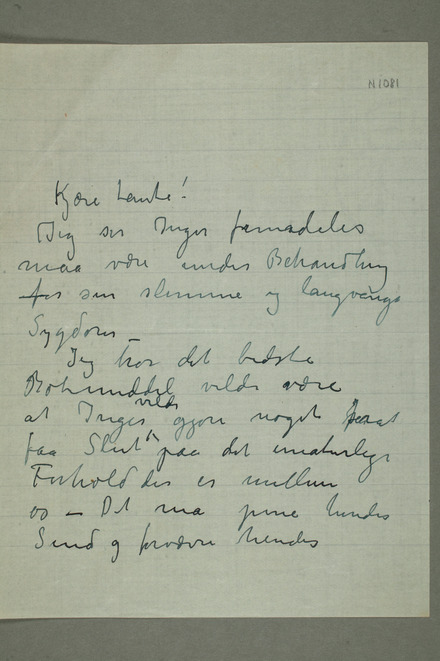 N 1081
Kjære Tante!
Jeg ser Inger fremdeles
maa være under Behandling
for sin slemme og langvarige
Sygdom –
Jeg tror det bedste
Botemiddel vilde være
at Inger vilde gjøre noget for at
faa Slut paa det unaturlige
Forhold der er mellem
os – Det maa pine hendes
Sind og forværre hendes